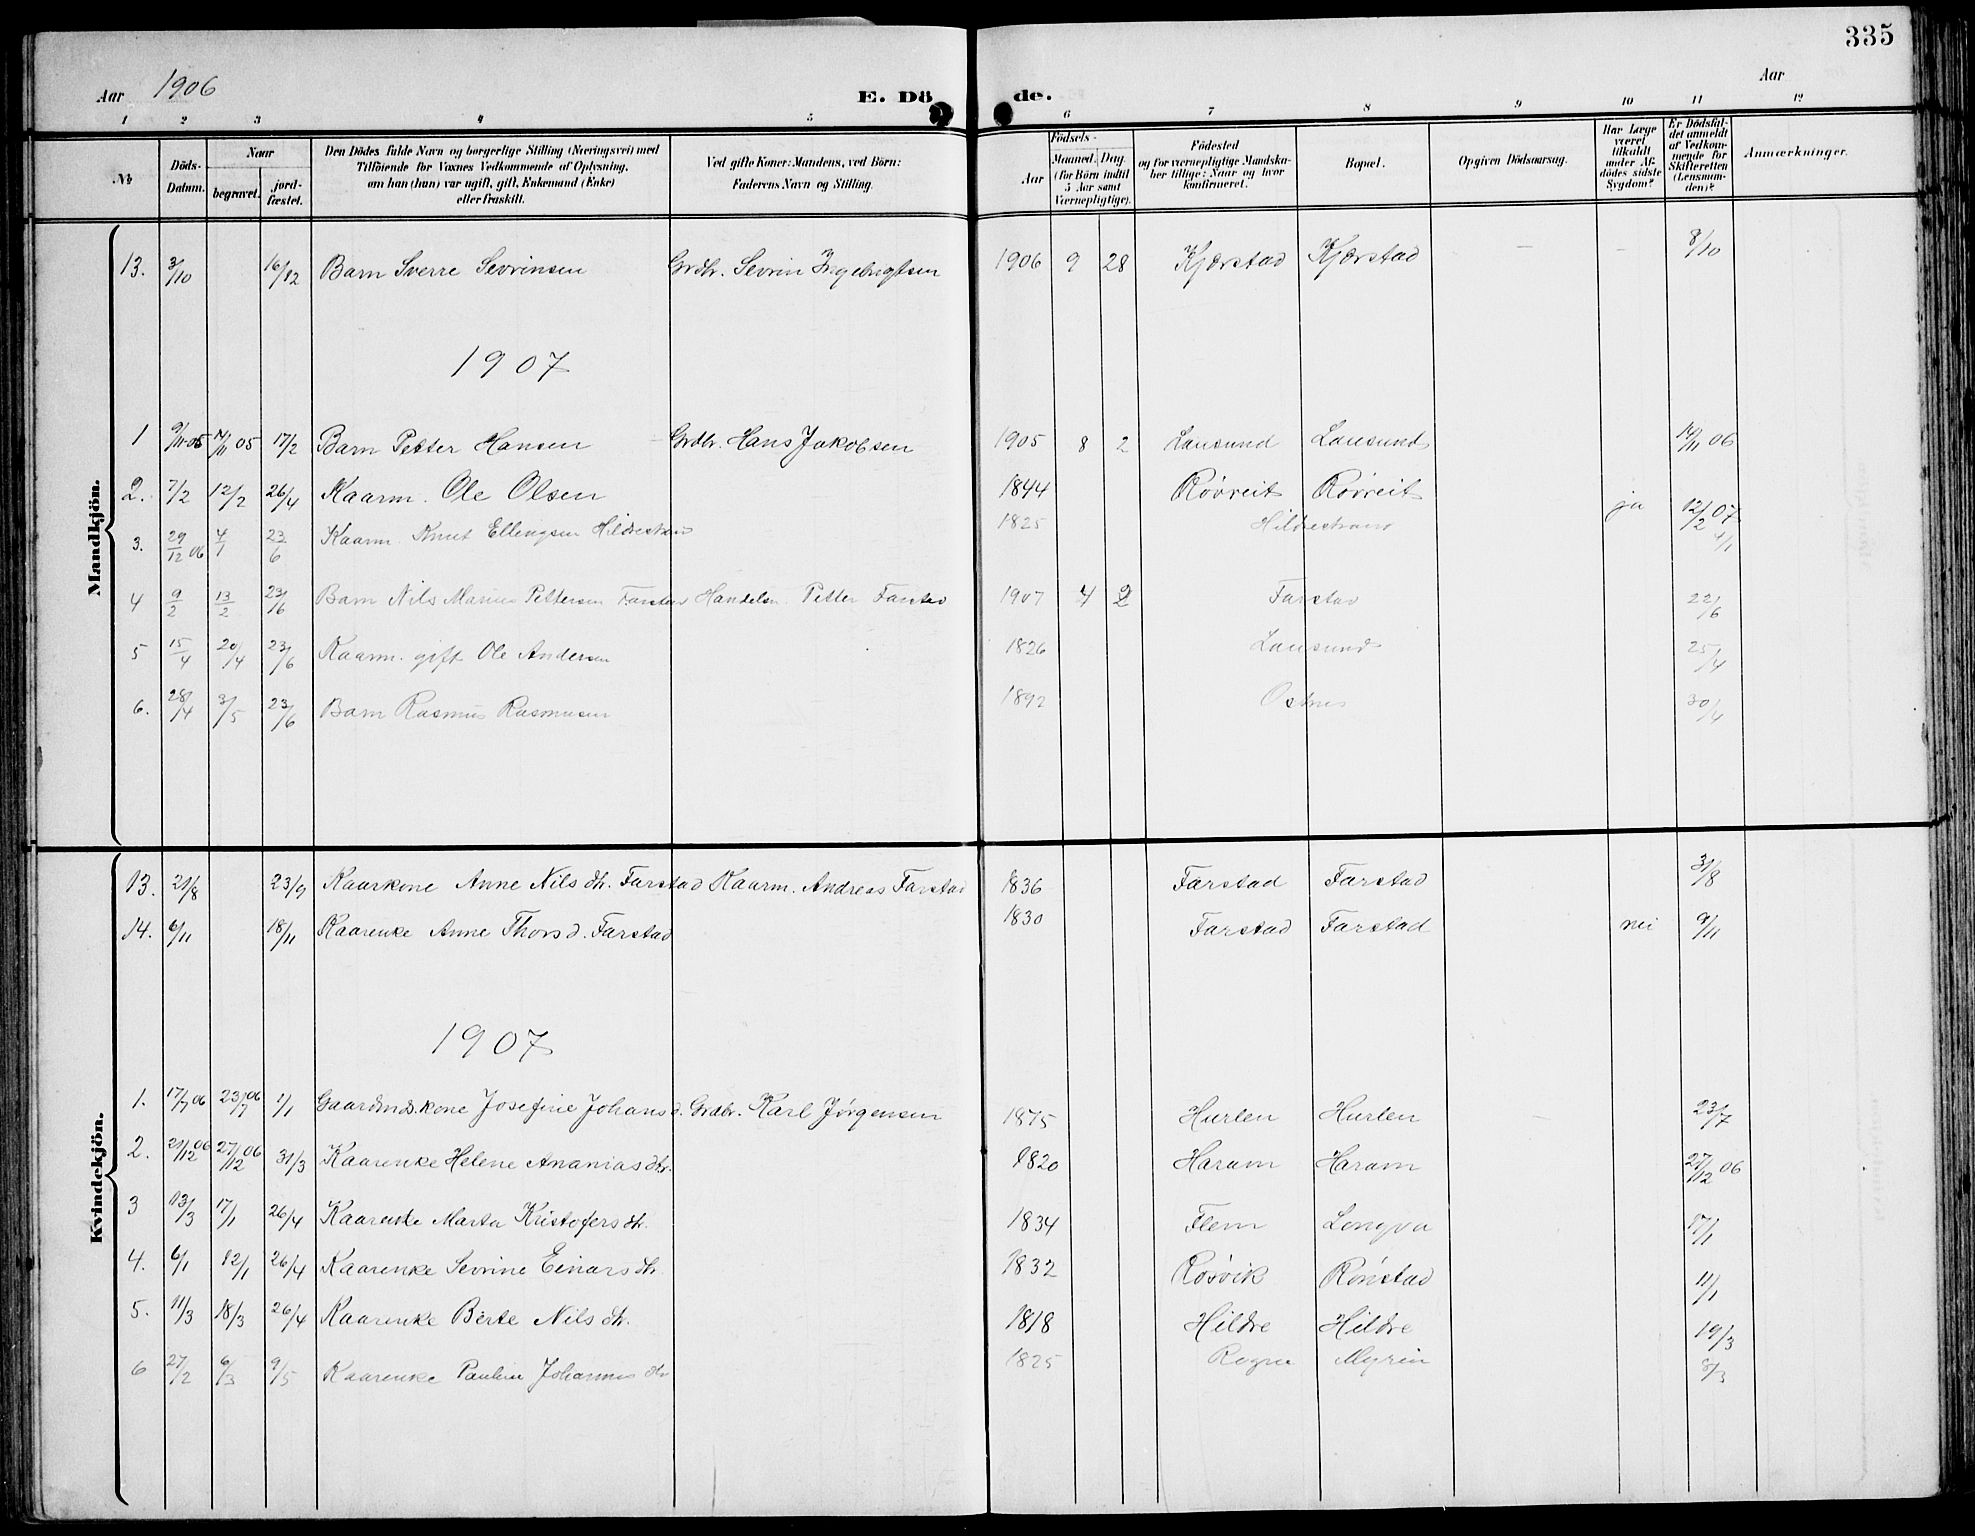 335
Aar 1906 E. Dö de. Aar
1 2 3 4 5 6 7 8 9 10 11 12
№ Döds-Datum. Naar begravet. jordfæstet. Den Dödes fulde Navn og borgerlige Stilling (Næringsvei) med Tilföiende for Voxnes Vedkommende af Oplysning, om han (hun) var ugift, gift, Enkemand (Enke) eller fraskilt. Ved gifte Koner: Mandens, ved Börn: Faderens Navn og Stilling. Födsels- Aar Maaned. Dag. (for Börn indtil 5 Aar samt Værnepligtige). Födested og for værnepligtige Mandskaber tillige: Naar og hvor konfirmeret. Bopæl. Opgiven Dödsaarsag. Har Læge været tilkaldt under Afdödes sidste Sygdom? Er Dödsfaldet anmeldt af Vedkommende for Skifteretten (Lensmanden)? Anmærkninger.
Mandkjön.
13. 3/10 16/12 Barn Sverre Sevrinsen Grdbr. Sevrin Ingebrigtsen 1906 9 28 Kjærstad Kjærstad — — 8/10
1907
1 9/11 05 14/11 05 17/2 Barn Petter Hansen Grdbr. Hans Jakobsen 1905 8 2 Lausund Lausund 14/11 06
2. 7/2 12/2 26/4 Kaarm. Ole Olsen 1844 Rövreit Rövreit ja 12/2 07
3. 29/12 06 4/1 23/6 Kaarm. Knut Ellengsen Hildrestrand 1825 Hildrestrand 4/1
4 9/2 13/2 23/6 Barn Nils Marius Pettersen Farstad Handelsm. Petter Farstad 1907 4 2 Farstad 22/6
5 15/4 20/4 23/6 Kaarm. gift Ole Andersen 1826 Lausund 25/4
6. 28/4 3/5 23/6 Barn Rasmus Rasmusen 1892 Ostnes 30/4
Kvindekjön.
13. 21/8 23/9 Kaarkone Anne Nils dtr. Farstad Kaarm. Andreas Farstad 1836 Farstad Farstad 31/8
14. 6/11 18/11 Kaarenke Anne Thors d. Farstad 1830 Farstad Farstad nei 9/11
1907
1. 17/7 06 23/7 06 1/1 Gaardmdskone Josefine Johans d. Grdbr. Karl Jørgensen 1875 Hurlen Hurlen 23/7
2. 21/12 06 27/12 06 31/3 Kaarenke Helene Ananias dtr. 1820 Haram Haram 27/12 06
3 13/3 17/1 26/4 Kaarenke Marta Kristofers dtr. 1834 Flem Longva 17/1
4. 6/1 12/1 26/4 Kaarenke Sevrine Einars dtr 1832 Rösvik Rönstad 11/1
5. 11/3 18/3 26/4 Kaarenke Berte Nils dtr. 1818 Hildre Hildre 19/3
6 27/2 6/3 9/5 Kaarenke Pauline Johannes dtr 1825 Rogne Myren 8/3